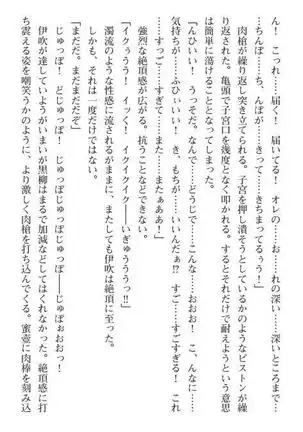 ん！　こっれ…届く！　届いてる！　オレの……お……れの深い……深いところまで…
…ちんぽ……ち、んぽが……きって……きちまってるぅう！」
　肉槍が繰り返し突き立てられる。子宮を押し潰そうとしているかのようなピストンが繰
り返された。亀頭で子宮口を幾度となく叩かれる。するとそれだけで耐えようという意思
は簡単に蕩けることとなってしまった。
「んひいい！　うっそだ。なんで……どうじで……お！　おおお！　こ、んなに……
気持ちが……ふひぃい！　き、もちが……いいんだぁ!?　すご……すごすぎる！　これ
……すっご……すぎて……また……またぁああ！」
　強烈な絶頂感が広がる。抗うことなどできない。
「イクぅうう！　イッく！　イクイクイク――いぎゅううう!!」
　濁流のような性感に流されるがままに、またしても伊吹は絶頂に至った。
　しかも、それは一度だけではない。
「まだだ。まだまだだぞ」
　じゅっぽ！　どじゅっぽ！　じゅっぽじゅっぽじゅっぽ――じゅぽぉおおお！
　伊吹が達していようがいまいが黒柳はまるで加減などしてはくれなかった。絶頂感に打
ち震える姿を嘲笑うかのように、より激しく肉槍を打ち込んでくる。蜜壺に肉棒を刻み込